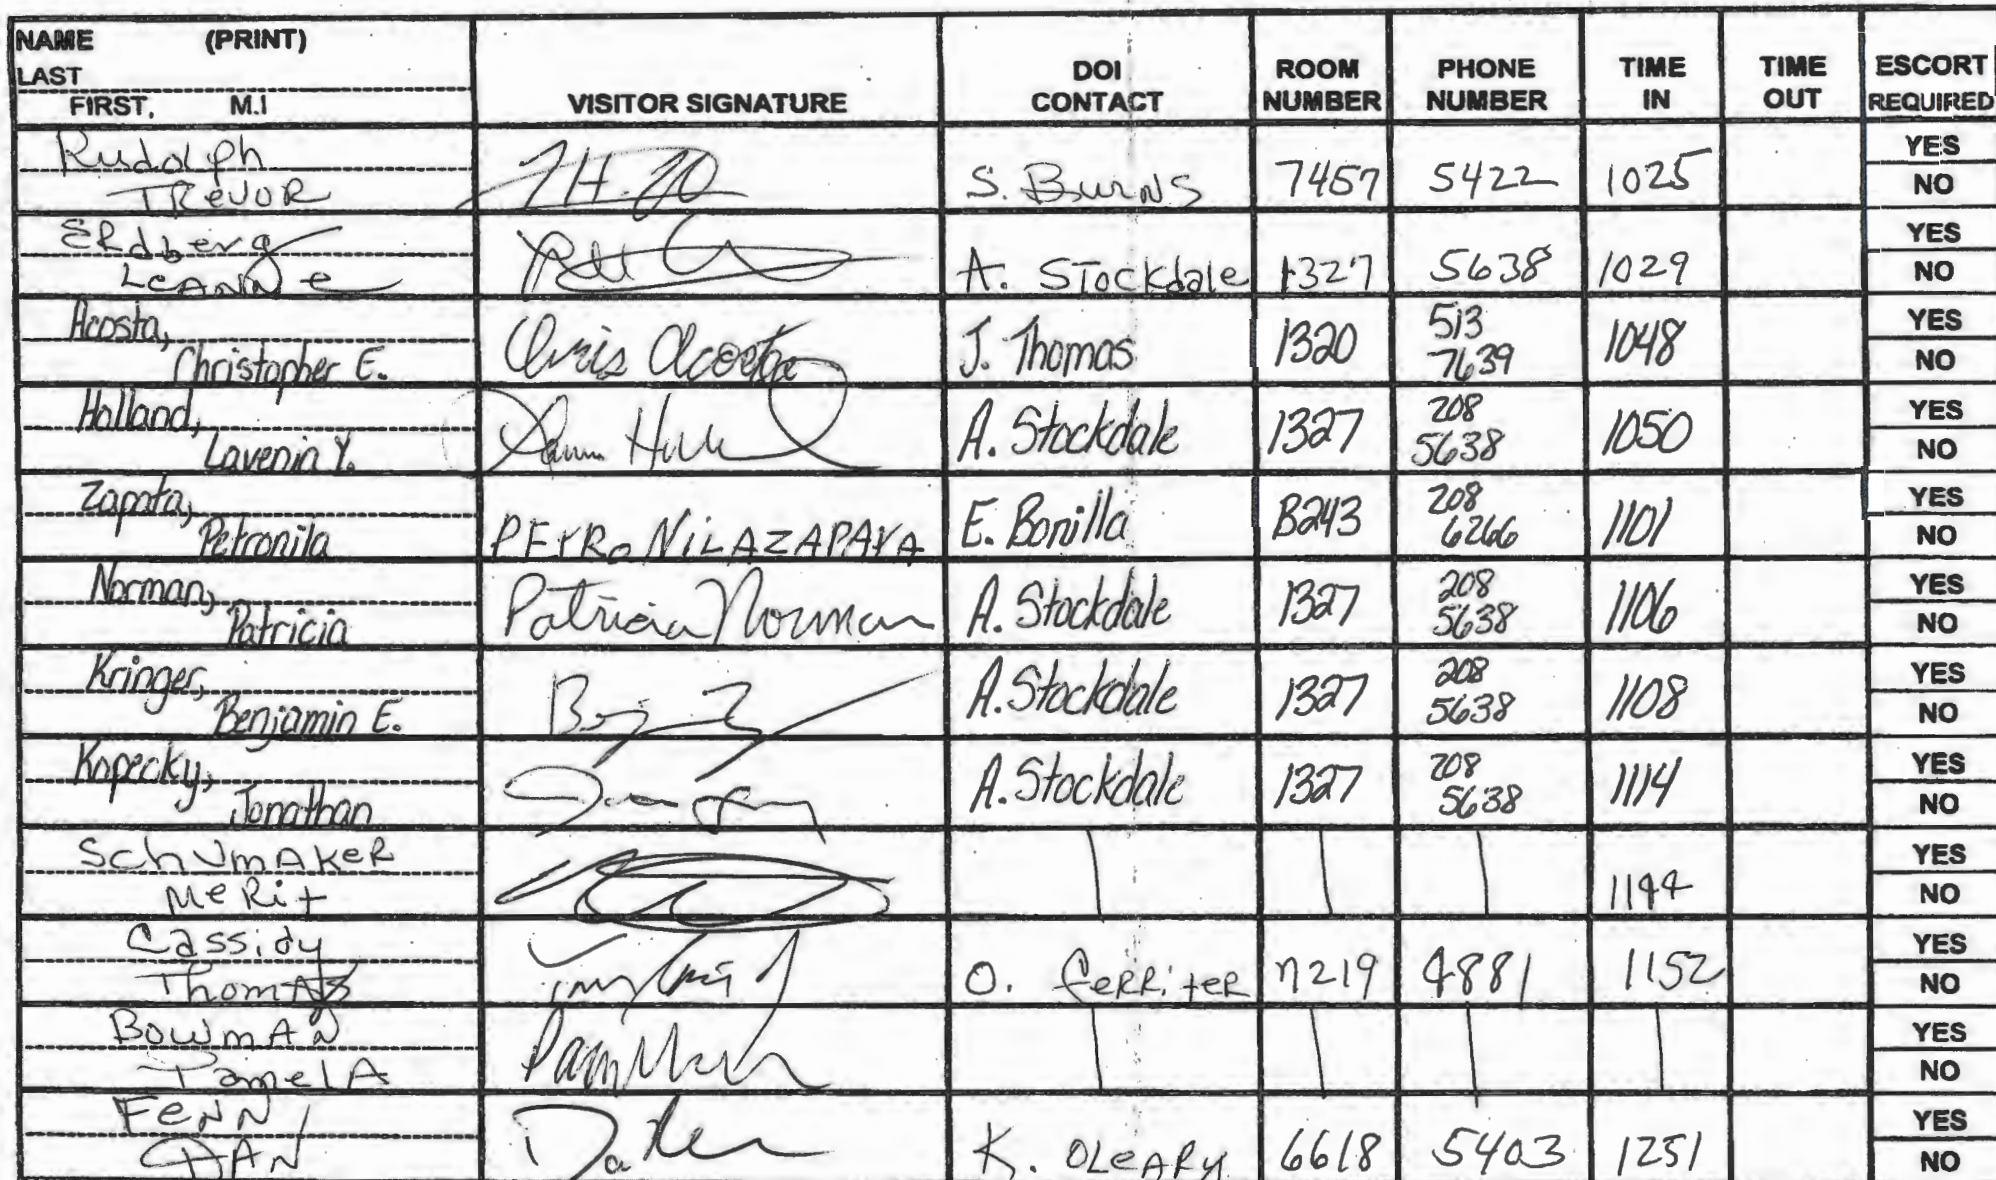 NAME (PRINT)
LAST
FIRST, M.I
VISITOR SIGNATURE
DOI CONTACT
ROOM NUMBER
PHONE NUMBER
TIME IN
TIME OUT
ESCORT REQUIRED
Rudolph
TRevoR
S. BurNS 7457 5422 1025 YES
NO
ERdberg
LeANNe
A. STockdale 1327 5638 1029 YES
NO
Acosta,
Christopher E.
Chris Acosta
J. Thomas 1320 513 7639 1048 YES
NO
Holland,
Lavenin Y.
A. Stockdale 1327 208 5638 1050 YES
NO
Zapata,
Petronila
PEYRoNiLAZAPAYA
E. Bonilla B243 208 6266 1101 YES
NO
Norman,
Patricia
Patricia Norman
A. Stockdale 1327 208 5638 1106 YES
NO
Kringer,
Benjamin E.
A. Stockdale 1327 208 5638 1108 YES
NO
Kopecky,
Jonathan
A. Stockdale 1327 208 5638 1114 YES
NO
SchUmAKeR
MeRit
1144 YES
NO
Cassidy
ThomAs
O. feRRiteR 7219 4881 1152 YES
NO
BowmAN
PamelA
YES
NO
FeNN
DAN
K. OLeARy 6618 5403 1251 YES
NO